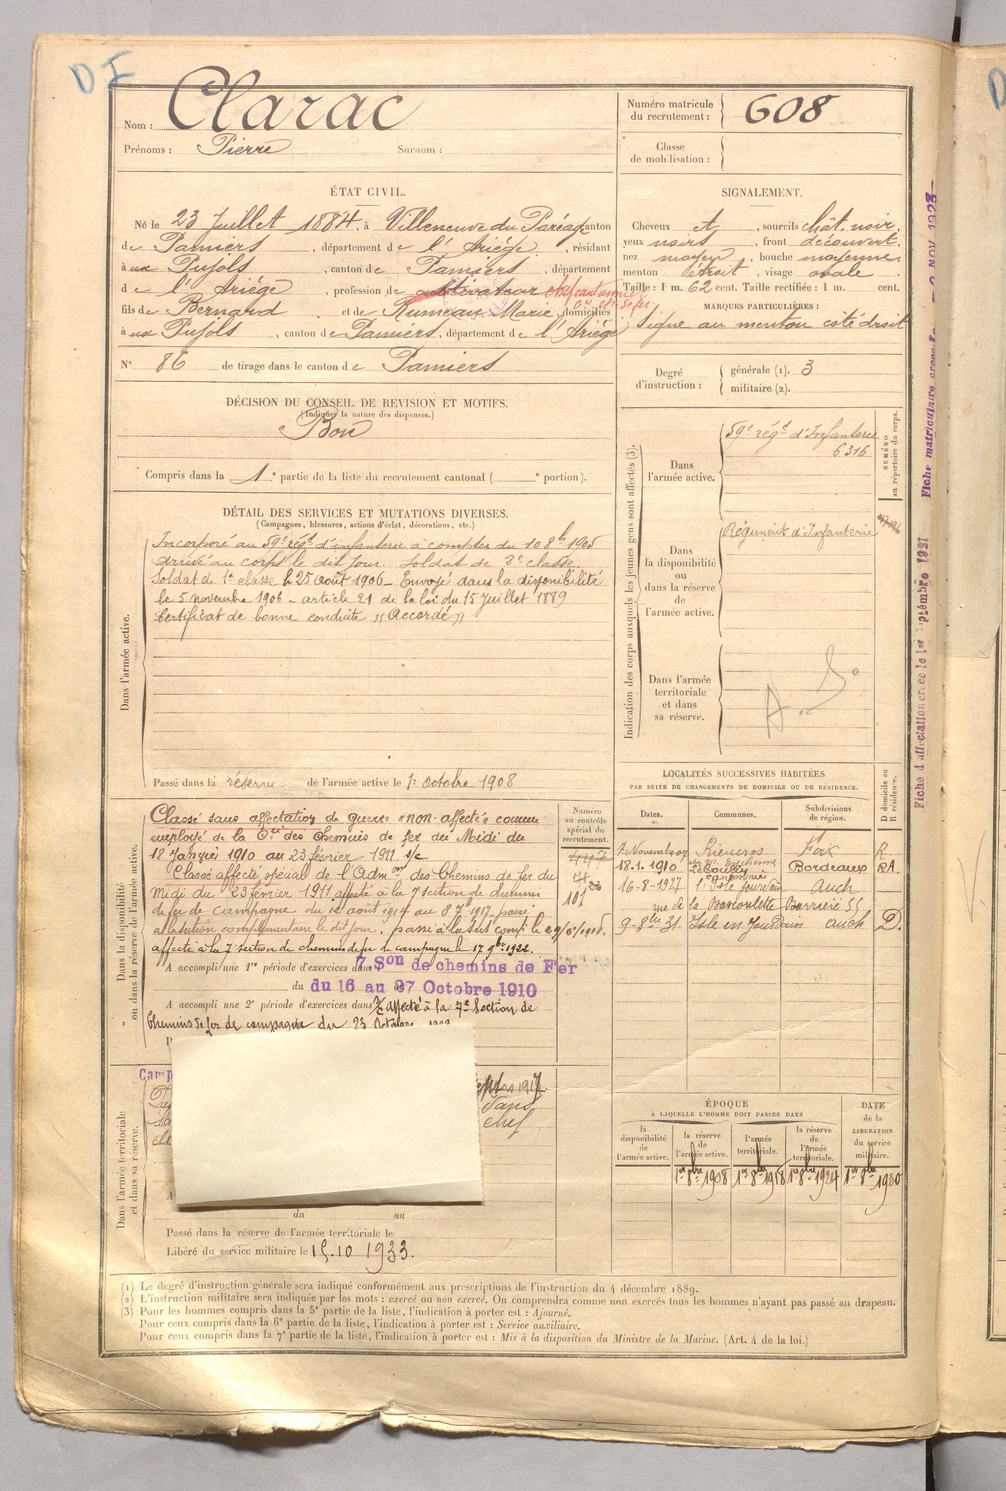 DI
Nom : Clarac
Prénoms : Pierre Surnom :
Numéro matricule du recrutement : 608
Classe de mobilisation :
ÉTAT CIVIL.
Né le 23 Juillet 1884, à Villeneuve du Paréage, canton
de Pamiers, département de l'Ariège, résidant
à Pujols, canton de Pamiers, département
de l'Ariège, profession de cultivateur
fils de Bernard et de Rumeau Marie, domiciliés
à Pujols, canton de Pamiers, département de l'Ariège
N° 86 de tirage dans le canton de Pamiers
SIGNALEMENT.
Cheveux et, sourcils chât. noir,
yeux noirs, front découvert,
nez moyen, bouche moyenne,
menton étroit, visage ovale
Taille : 1 m. 62 cent. Taille rectifiée : 1 m. cent.
MARQUES PARTICULIÈRES :
Signe au menton côté droit
Degré d'instruction : générale (1). 3
militaire (2).
DÉCISION DU CONSEIL DE REVISION ET MOTIFS.
(Indiquer la nature des dispenses.)
Bon
Compris dans la 1e partie de la liste du recrutement cantonal ( e portion).
DÉTAIL DES SERVICES ET MUTATIONS DIVERSES.
(Campagnes, blessures, actions d'éclat, décorations, etc.)
Dans l'armée active.
Incorporé au 59e régt d'infanterie à compter du 10 8bre 1905
arrivé au corps le dit jour. Soldat de 2e classe.
Soldat de 1e classe le 25 Août 1906 - Envoyé dans la disponibilité
le 5 novembre 1906 - article 21 de la loi du 15 Juillet 1889
Certificat de bonne conduite "Accordé"
Passé dans la réserve de l'armée active le 1er octobre 1908
Indication des corps auxquels les jeunes gens sont affectés (3).
NUMÉRO au répertoire du corps.
Dans l'armée active.
59e régt d'Infanterie
6316
Dans la disponibilité ou dans la réserve de l'armée active.
Régiment d'Infanterie
Dans l'armée territoriale et dans sa réserve.
A. S.
Dans la disponibilité ou dans la réserve de l'armée active.
Classé sans affectation de guerre "non affecté" comme
employé de la Cie des Chemins de fer du Midi du
18 Janvier 1910 au 23 février 1911
Classé affecté spécial de l'Admon des Chemins de fer du
Midi du 23 février 1911 affecté à la 7e section de chemins
de fer de campagne du 12 août 1914 au 8 7bre 1917, passé
affecté à la 7e section de chemins de fer de campagne le 17 9bre 1922.
A accompli une 1re période d'exercices dans 7e Son de chemins de Fer
du 16 au 27 Octobre 1910
A accompli une 2e période d'exercices dans Affecté à la 7e Section de
Chemins de fer de campagne du 23 Octobre
Numéro au contrôle spécial du recrutement.
LOCALITÉS SUCCESSIVES HABITÉES
PAR SUITE DE CHANGEMENTS DE DOMICILE OU DE RÉSIDENCE.
Dates. Communes. Subdivisions de région. D domicile ou R résidence.
7 Novembre 07 Rieucros Foix R
18.1.1910 Bordeaux RA.
16-8-1927 Auch
rue de la Barrière 55
9-8bre 31. Isle en Jourdain auch D.
Dans l'armée territoriale et dans sa réserve.
Camp
du au
Passé dans la réserve de l'armée territoriale le
Libéré du service militaire le 15-10 1933.
ÉPOQUE
À LAQUELLE L'HOMME DOIT PASSER DANS
la disponibilité de l'armée active.
la réserve de l'armée active.
l'armée territoriale.
la réserve de l'armée territoriale.
DATE de la LIBÉRATION du service militaire.
1er 8bre 1908 1er 8bre 1918 1er 8bre 1924 1er 8bre 1930
(1) Le degré d'instruction générale sera indiqué conformément aux prescriptions de l'instruction du 4 décembre 1889.
(2) L'instruction militaire sera indiquée par les mots : exercé ou non exercé. On comprendra comme non exercés tous les hommes n'ayant pas passé au drapeau.
(3) Pour les hommes compris dans la 5e partie de la liste, l'indication à porter est : Ajourné.
Pour ceux compris dans la 6e partie de la liste, l'indication à porter est : Service auxiliaire.
Pour ceux compris dans la 7e partie de la liste, l'indication à porter est : Mis à la disposition du Ministre de la Marine. (Art. 4 de la loi.)
Fiche d'affectation créée le 1er Septembre 1931
Fiche matriculaire créée le 2 NOV 1923